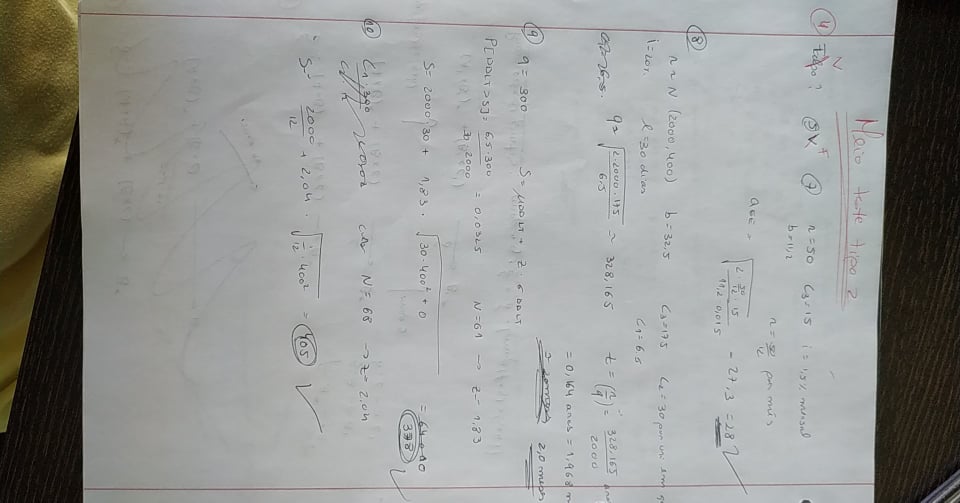 Meio teste tipo 2
4 N ? 5 V F 7 r = 50 C3 = 15 i = 1,5% mensal
b = 11,2
r = 50/12 por mês
QEE = √(2 · 50/12 · 15 / 11,2 · 0,015) = 27,3 = 28
8
r ~ N (2000, 400) b = 32,5 C3 = 175 C2 = 30 por uni em
i = 20% l = 30 dias C1 = 6.5
q = √(2 · 2000 · 175 / 6,5) = 328,165 t = (r/q)⁻¹ = 328,165 / 2000
= 0,164 anos = 1,968 m
2,0 meses
9 q = 300 S = μDDLT + Z · σDDLT
P[DDLT > S] = 6,5 · 300 / 30 · 2000 = 0,0325 N = 61 → Z = 1,83
S = 2000 · 30 + 1,83 · √(30 · 400² + 0) =
378
10 N = 68 → Z = 2,04
S = 2000/12 + 2,04 · √(1/12 · 400²) = 405